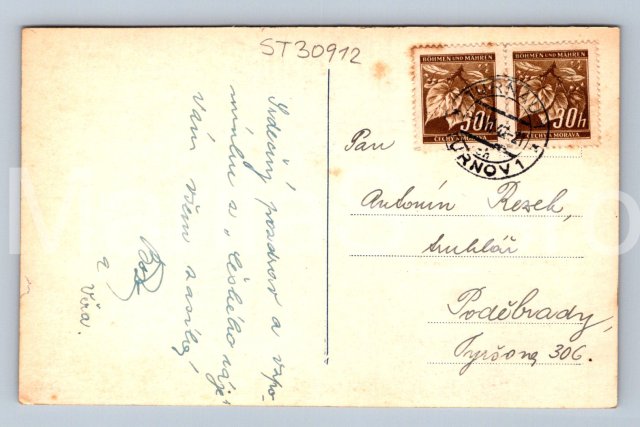 ST30912
BÖHMEN UND MÄHREN
30h
ČECHY A MORAVA
BÖHMEN UND MÄHREN
30h
ČECHY A MORAVA
TURNAU
TURNOV 1
Srdečný pozdrav a vzpo-
mínku z "Českého ráje"
Vám všem zasílá,
a Věra.
Pan
Antonín Rezek,
truhlář
Poděbrady,
Tyršova 306.